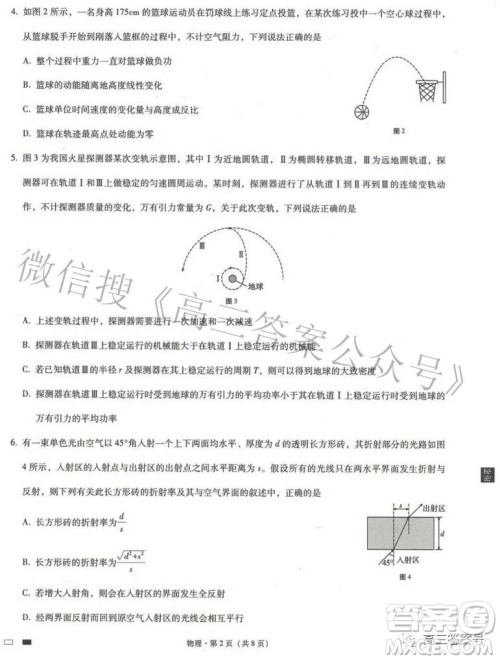 4. 如图2所示，一名身高175cm的篮球运动员在罚球线上练习定点投篮，在某次练习投中一个空心球过程中，
从篮球脱手开始到刚落入篮框的过程中，不计空气阻力，下列说法正确的是
A. 整个过程中重力一直对篮球做负功
B. 篮球的动能随离地高度线性变化
C. 篮球单位时间速度的变化量与高度成正比
D. 篮球在轨迹最高点处动能为零
图2
5. 图3为我国火星探测器某次变轨示意图，其中Ⅰ为近地圆轨道，Ⅱ为椭圆转移轨道，Ⅲ为远地圆轨道，探
测器可在轨道Ⅰ和Ⅲ上做稳定的匀速圆周运动。某时刻，探测器进行从轨道Ⅰ到Ⅱ再到Ⅲ的连续变轨动
作，不计探测器质量的变化，万有引力常量为G，关于此次变轨，下列说法正确的是
Ⅲ
Ⅱ
Ⅰ
地球
图3
A. 上述变轨过程中，探测器需要进行一次加速和一次减速
B. 探测器在轨道Ⅲ上稳定运行的机械能大于在轨道Ⅰ上稳定运行的机械能
C. 若已知轨道Ⅲ的半径r及其轨道的周期T，则可以推得地球的质量及密度
D. 探测器在轨道Ⅲ上稳定运行时的万有引力的平均功率大于探测器在轨道Ⅰ上稳定运行时的
万有引力的平均功率
6. 有一束单色光由空气以45°角入射一个上下两面均水平、厚度为d的透明长方形砖，其折射部分的光路如图
4所示，入射区的入射点与出射区的出射点的水平距离为s。假设所有的光线到达两个水平界面均发生折射与
反射，则关于长方形砖的折射率及其与空气界面的叙述，正确的是
A. 长方形砖的折射率为d/s
B. 长方形砖的折射率为√(d²+s²)/s
C. 若增大入射角，则会在长方形砖内发生全反射
D. 光线在两界面经两次反射后而回到原空气入射区的光线，将与原入射光线平行
出射区
s
d
45°
入射区
图4
物理·第2页（共8页）
微信搜《高三答案公众号》
高三答案号